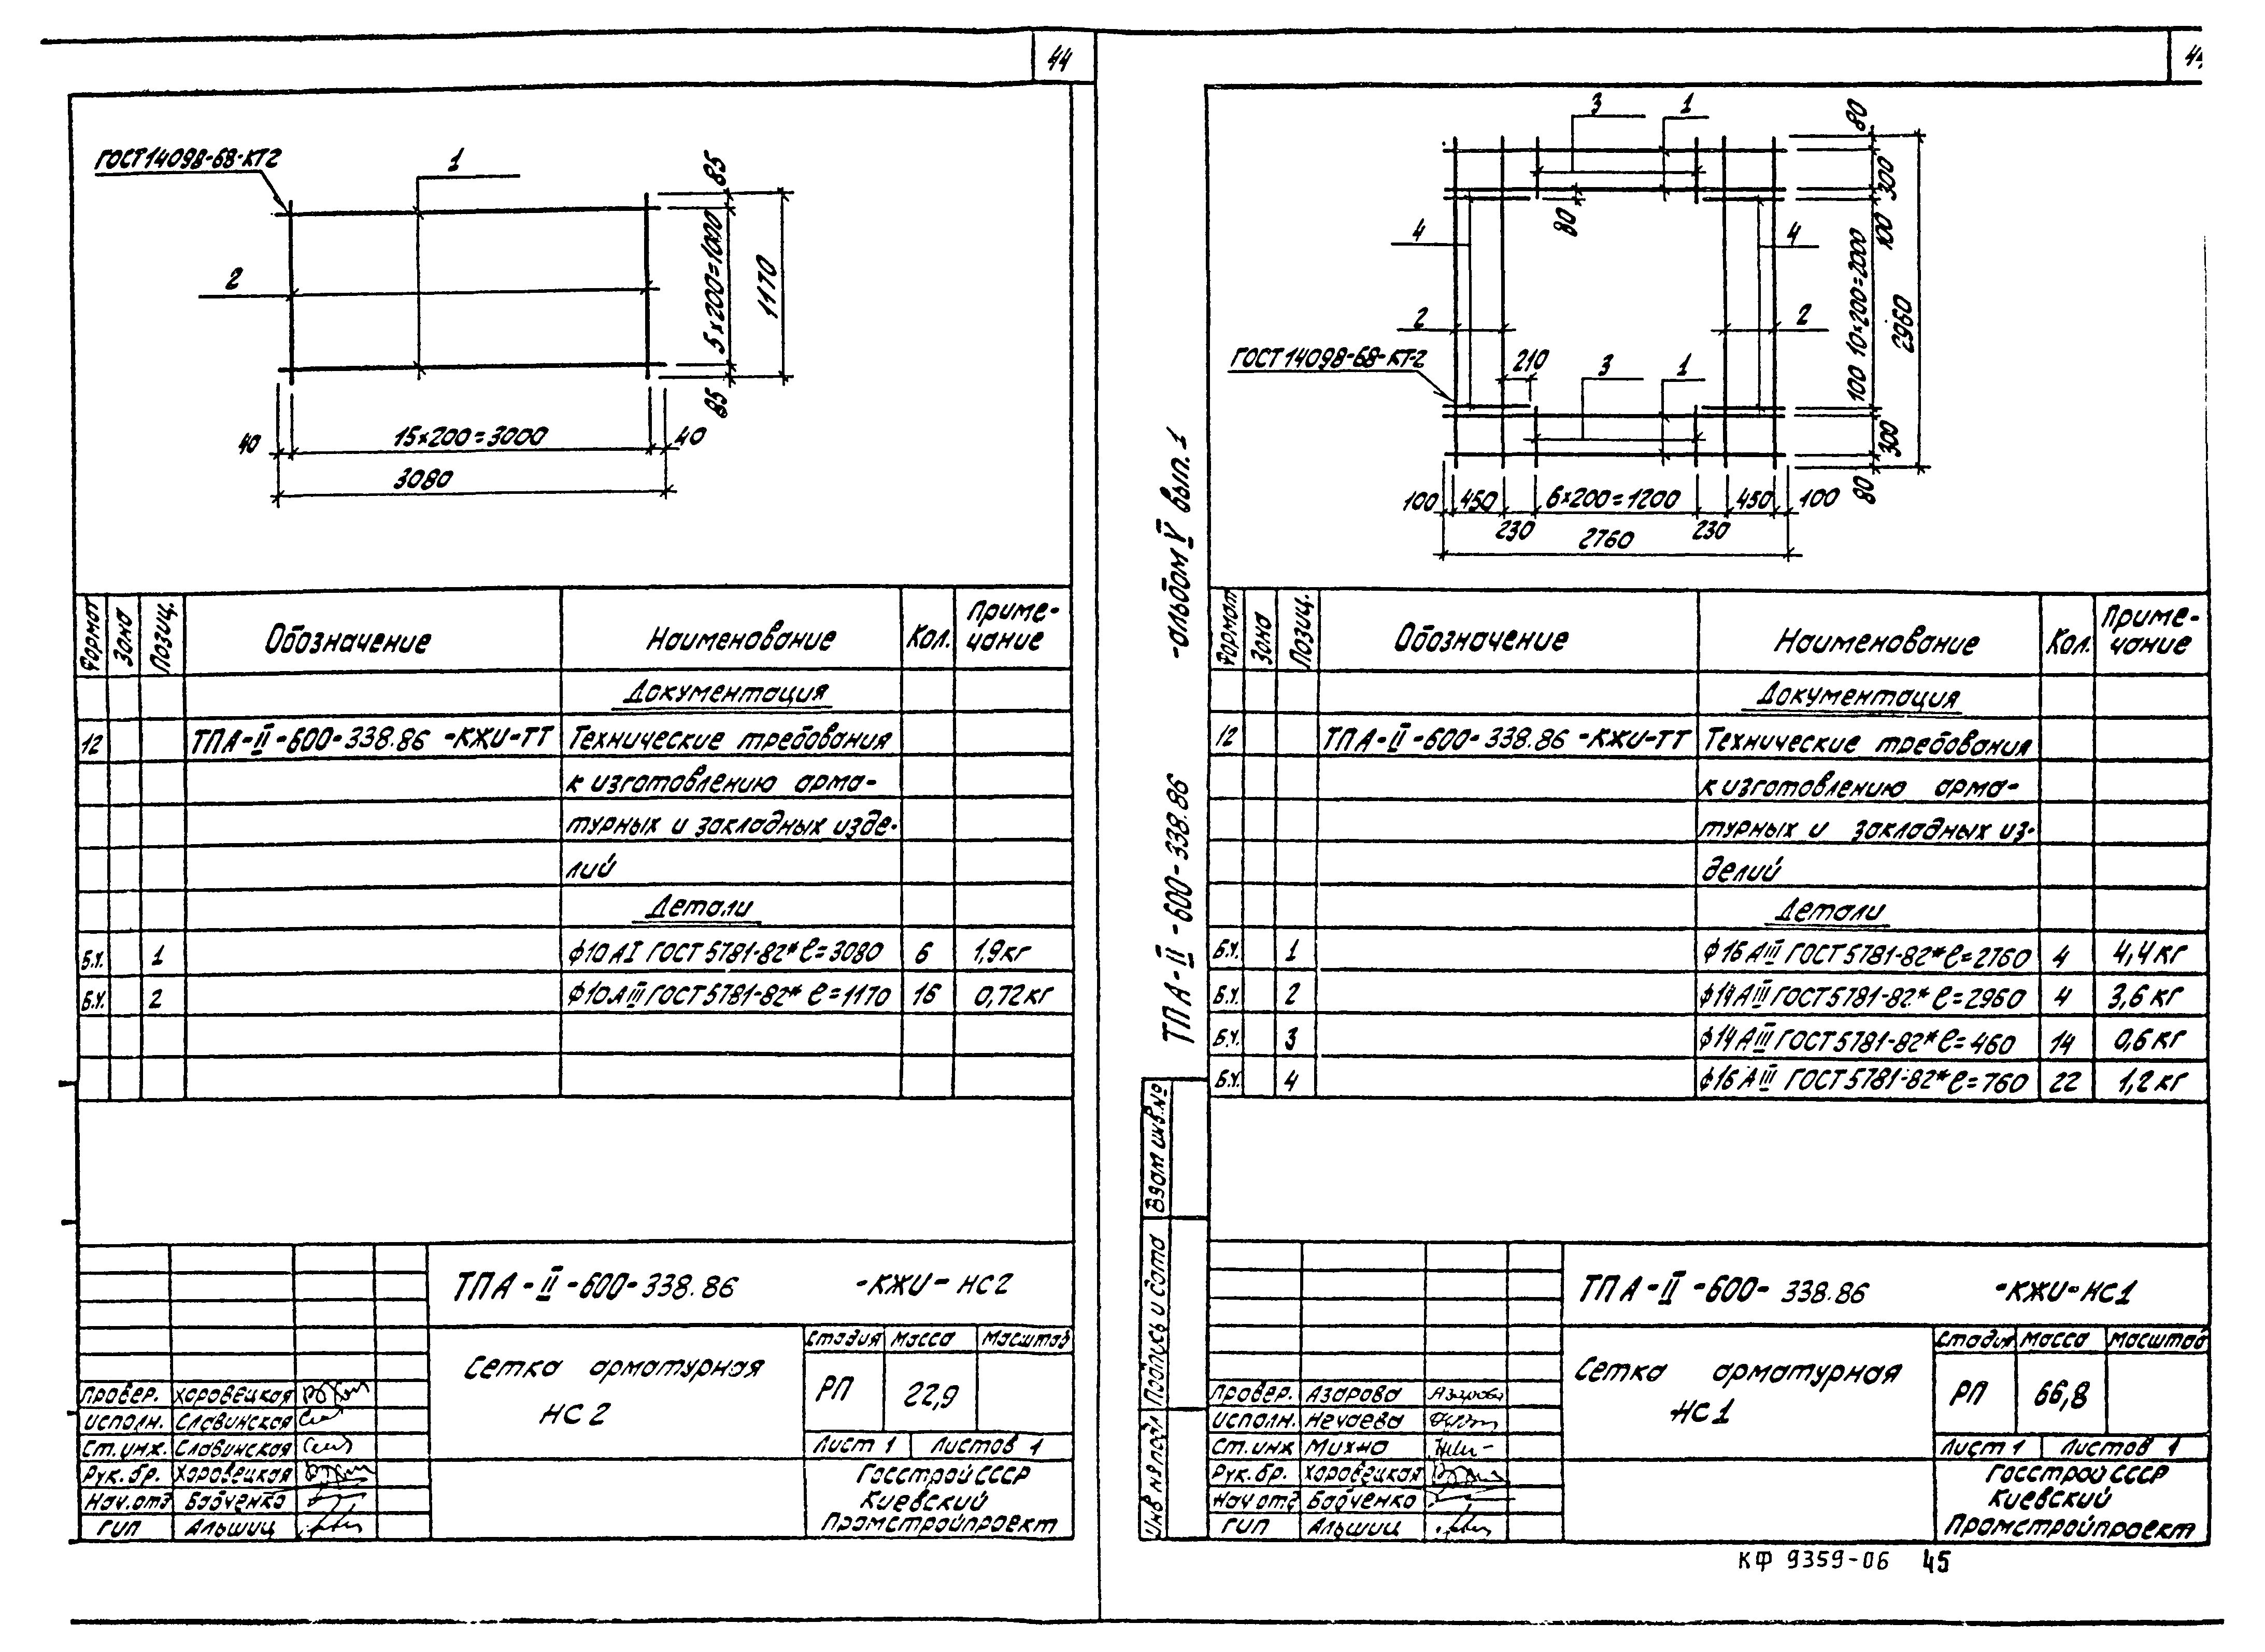 44
ГОСТ14098-68-КТ2
1
2
85
5×200=1000
85
1170
40
15×200=3000
40
3080
Формат
Зона
Позиц.
Обозначение
Наименование
Кол.
Приме-
чание
Документация
12 ТПА-II-600-338.86 -КЖИ-ТТ Технические требования
к изготовлению арма-
турных и закладных изде-
лий
Детали
Б.Ч. 1 ф10АI ГОСТ5781-82* ℓ=3080 6 1,9кг
Б.Ч. 2 ф10АIII ГОСТ5781-82* ℓ=1170 16 0,72кг
ТПА-II-600-338.86 -КЖИ-НС2
Сетка арматурная
НС2
Стадия Масса Масштаб
РП 22,9
Лист 1 Листов 1
Госстрой СССР
Киевский
Промстройпроект
Провер. Хоровецкая
Исполн. Славинская
Ст.инж. Славинская
Рук.бр. Хоровецкая
Нач.отд Бабченко
ГИП Альшиц
3
1
80
300
100
80
4
4
10×200=2000
2960
2
2
ГОСТ14098-68-КТ-2
210
3
1
100
300
80
100
450
6×200=1200
450
100
230
230
2760
ТПА-II-600-338.86 -альбом V вып.1
Формат
Зона
Позиц.
Обозначение
Наименование
Кол.
Приме-
чание
Документация
12 ТПА-II-600-338.86 -КЖИ-ТТ Технические требования
к изготовлению арма-
турных и закладных из-
делий
Детали
Б.Ч. 1 ф16АIII ГОСТ5781-82* ℓ=2760 4 4,4кг
Б.Ч. 2 ф14АIII ГОСТ5781-82* ℓ=2960 4 3,6кг
Б.Ч. 3 ф14АIII ГОСТ5781-82* ℓ=460 14 0,6кг
Б.Ч. 4 ф16АIII ГОСТ5781-82* ℓ=760 22 1,2кг
Взам инв.№
Подпись и дата
Инв № подл
ТПА-II-600-338.86 -КЖИ-НС1
Сетка арматурная
НС1
Стадия Масса Масштаб
РП 66,8
Лист 1 Листов 1
Госстрой СССР
Киевский
Промстройпроект
Провер. Азарова
Исполн. Нечаева
Ст.инж Михно
Рук.бр. Хоровецкая
Нач отд Бабченко
ГИП Альшиц
КФ 9359-06 45